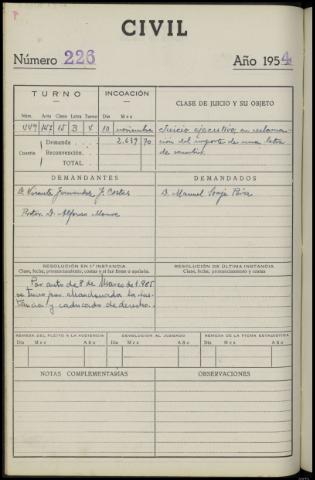 CIVIL
Número 226 Año 1954
TURNO
INCOACIÓN
CLASE DE JUICIO Y SU OBJETO
Núm. Acta Clase Letra Turno Día Mes
447 15 B 10 noviembre
Cuantía Demanda 2.639 70
Reconvención
TOTAL
Juicio ejecutivo, en reclama-
ción del importe de una letra
de cambio.
DEMANDANTES
DEMANDADOS
D. Vicente Fernández J. Cortes
Procr. D. Alfonso
D. Manuel
RESOLUCIÓN EN 1.ª INSTANCIA
Clase, fecha, pronunciamiento, costas y si fué firme o apelada.
RESOLUCIÓN DE ÚLTIMA INSTANCIA
Clase, fecha, pronunciamiento y costas
Por auto de 8 de Marzo de 1.985
se tuvo por abandonada la ins-
tancia y caducado de derecho.
REMESA DEL PLEITO A LA AUDIENCIA
DEVOLUCIÓN AL JUZGADO
REMESA DE LA FICHA ESTADÍSTICA
Día Mes Año Día Mes Año Día Mes Año
NOTAS COMPLEMENTARIAS
OBSERVACIONES